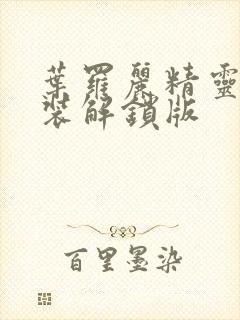 葉羅麗精靈
裝解鎖版
百里墨染